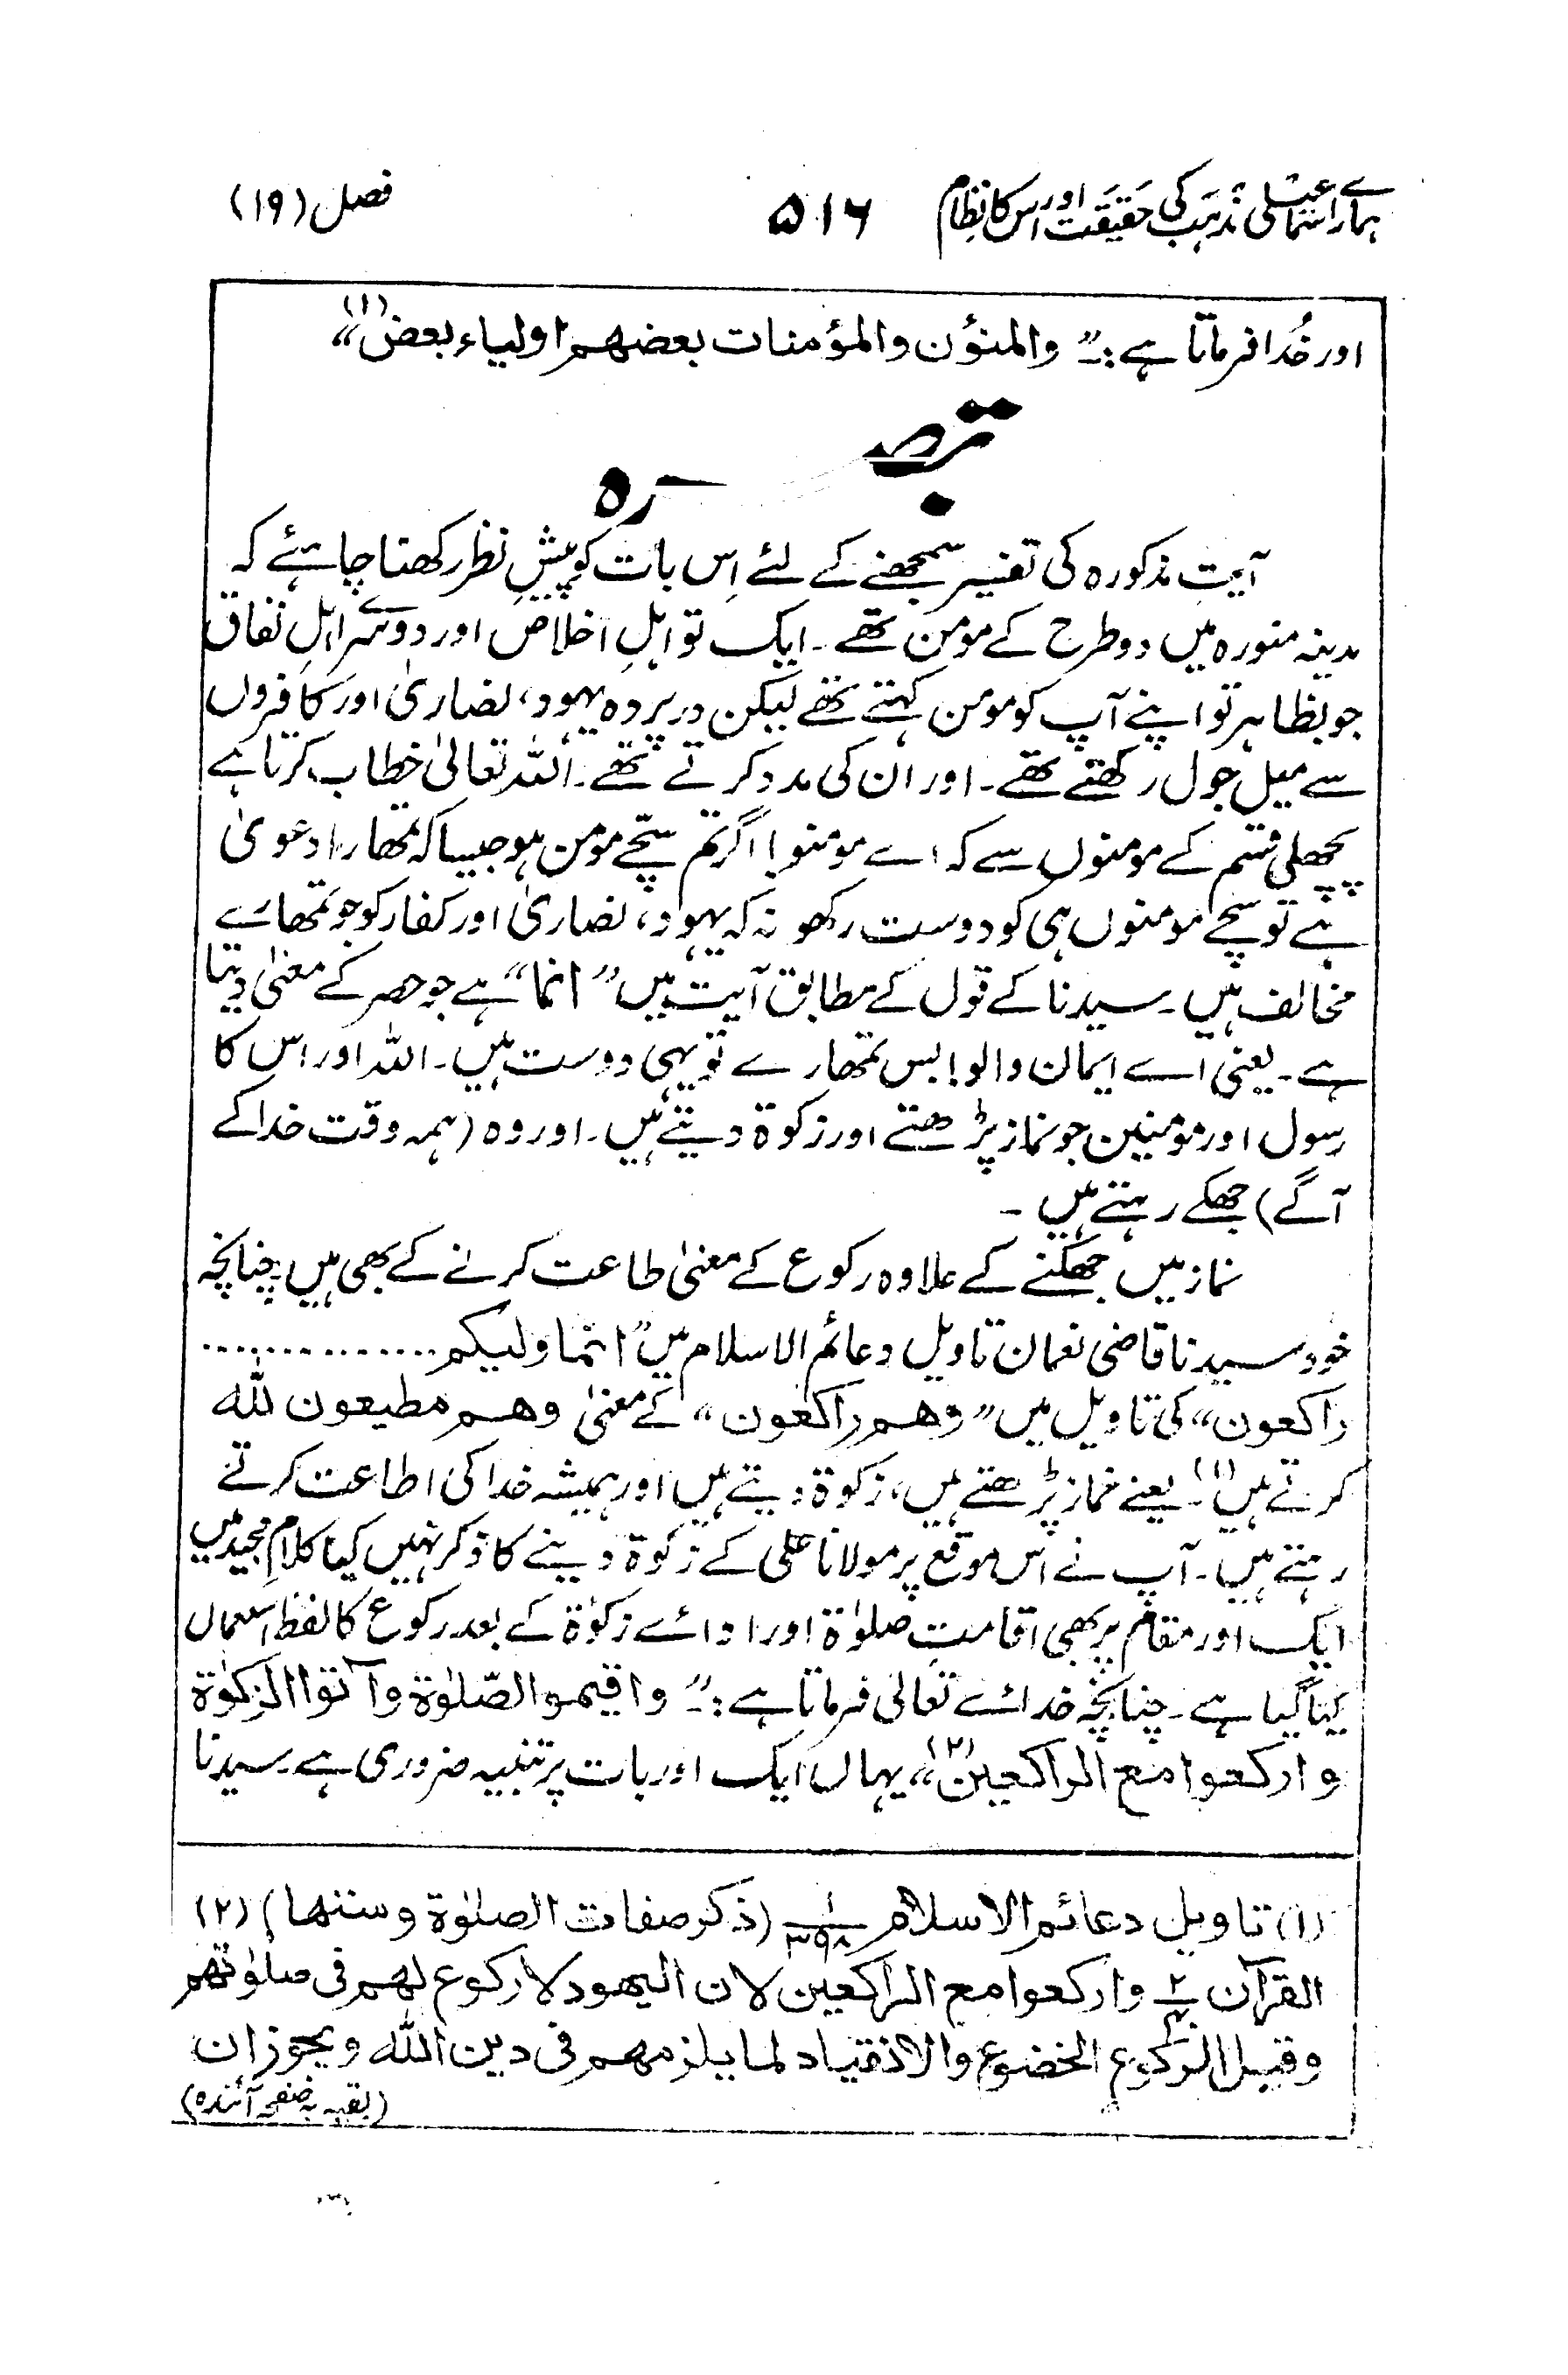 ہمارے اسماعیلی مذہب کی حقیقت اور اس کا نظام ۵۱۶ فصل (۱۹)
اور خُدا فرماتا ہے:۔ "والمنؤن والمؤمنات بعضھم اولیاء بعض (۱)"
تبصرہ
آیتِ مذکورہ کی تفسیر سمجھنے کے لئے اِس بات کو پیشِ نظر رکھنا چاہئے کہ
مدینہ منورہ میں دو طرح کے مومن تھے۔ ایک تو اہلِ اخلاص اور دوسرے اہلِ نفاق
جو بظاہر تو اپنے آپ کو مومن کہتے تھے لیکن در پردہ یہود، نصاریٰ اور کافروں
سے میل جول رکھتے تھے۔ اور ان کی مدد کرتے تھے۔ اللہ تعالیٰ خطاب کرتا ہے
پچھلی قسم کے مومنوں سے کہ اے مومنو! اگر تم سچّے مومن ہو جیسا کہ تمھارا دعویٰ
ہے تو سچے مومنوں ہی کو دوست رکھو نہ کہ یہود، نصاریٰ اور کفار کو جو تمھارے
مخالف ہیں۔ سیدنا کے قول کے مطابق آیت میں "انما" ہے جو حصر کے معنیٰ دیتا
ہے۔ یعنی اے ایمان والو! بس تمھارے تو یہی دوست ہیں۔ اللہ اور اس کا
رسول اور مومنین جو نماز پڑھتے اور زکوۃ دیتے ہیں۔ اور وہ (ہمہ وقت خدا کے
آگے) جھکے رہتے ہیں۔
نماز میں جھکنے کے علاوہ رکوع کے معنیٰ طاعت کرنے کے بھی ہیں چنانچہ
خود سیدنا قاضی نعمان تاویل دعائم الاسلام میں "انما ولیکم ..............
راکعون" کی تاویل میں "وھم راکعون" کے معنیٰ وھم مطیعون للہ
کرتے ہیں (۱)۔ یعنے نماز پڑھتے ہیں، زکوۃ دیتے ہیں اور ہمیشہ خدا کی اطاعت کرتے
رہتے ہیں۔ آپ نے اس موقع پر مولانا علی کے زکوۃ دینے کا ذکر نہیں کیا کلامِ مجید میں
ایک اور مقام پر بھی اقامتِ صلوٰۃ اور ادائے زکوٰۃ کے بعد رکوع کا لفظ استعمال
کیا گیا ہے۔ چنانچہ خدائے تعالیٰ فرماتا ہے:۔ "واقیموالصّلوٰۃ وآتوا الزکوٰۃ
وارکعوا مع الراکعین (۲)"، یہاں ایک اور بات پر تنبیہ ضروری ہے۔ سیدنا
(۱) تاویل دعائم الاسلام ۱/۳۵۸ (ذکر صفات الصلوٰۃ وسننھا) (۲)
القرآن ۲/ وارکعوا مع الراکعین لان الیھود لا رکوع لھم فی صلوٰتھم
وقیل الرکوع الخضوع والانقیاد لما یلزمھم فی دین اللہ ویجوز ان
(بقیہ بہ صفحہ آئندہ)